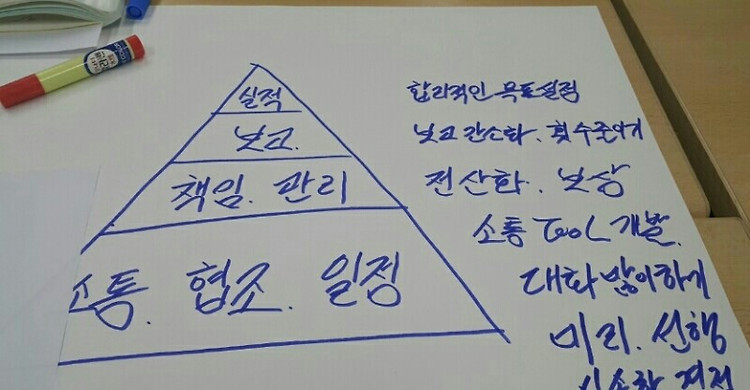 실적
보고.
책임. 관리
소통. 협조. 일정
합리적인 목표설정
보고 간소화. 횟수줄이기
전산화. 보상
소통 TooL 개발.
대화 많이하기
미리. 선행